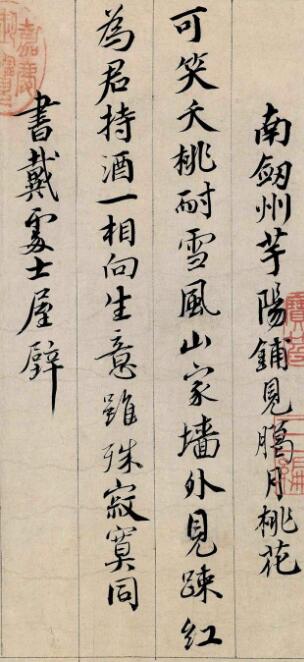 南劔州芋陽鋪見臈月桃花
可笑夭桃耐雪風山家墻外見疎紅
為君持酒一相向生意雖殊寂寞同
書戴處士屋壁